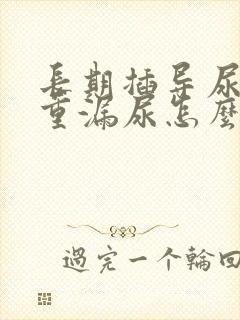 長期插导尿
重漏尿怎麼
過完一个輪回